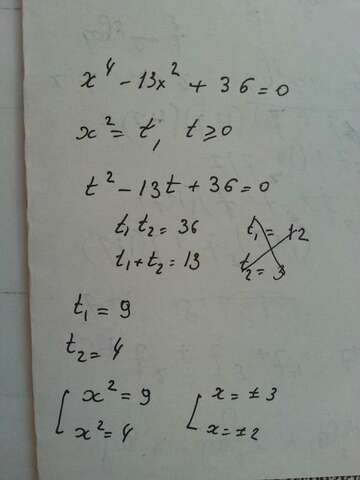 x⁴ - 13x² + 36 = 0
x² = t, t ≥ 0
t² - 13t + 36 = 0
t₁ t₂ = 36
t₁ + t₂ = 13
t₁ = 12
t₂ = 3
t₁ = 9
t₂ = 4
[ x² = 9
x² = 4
[ x = ± 3
x = ± 2